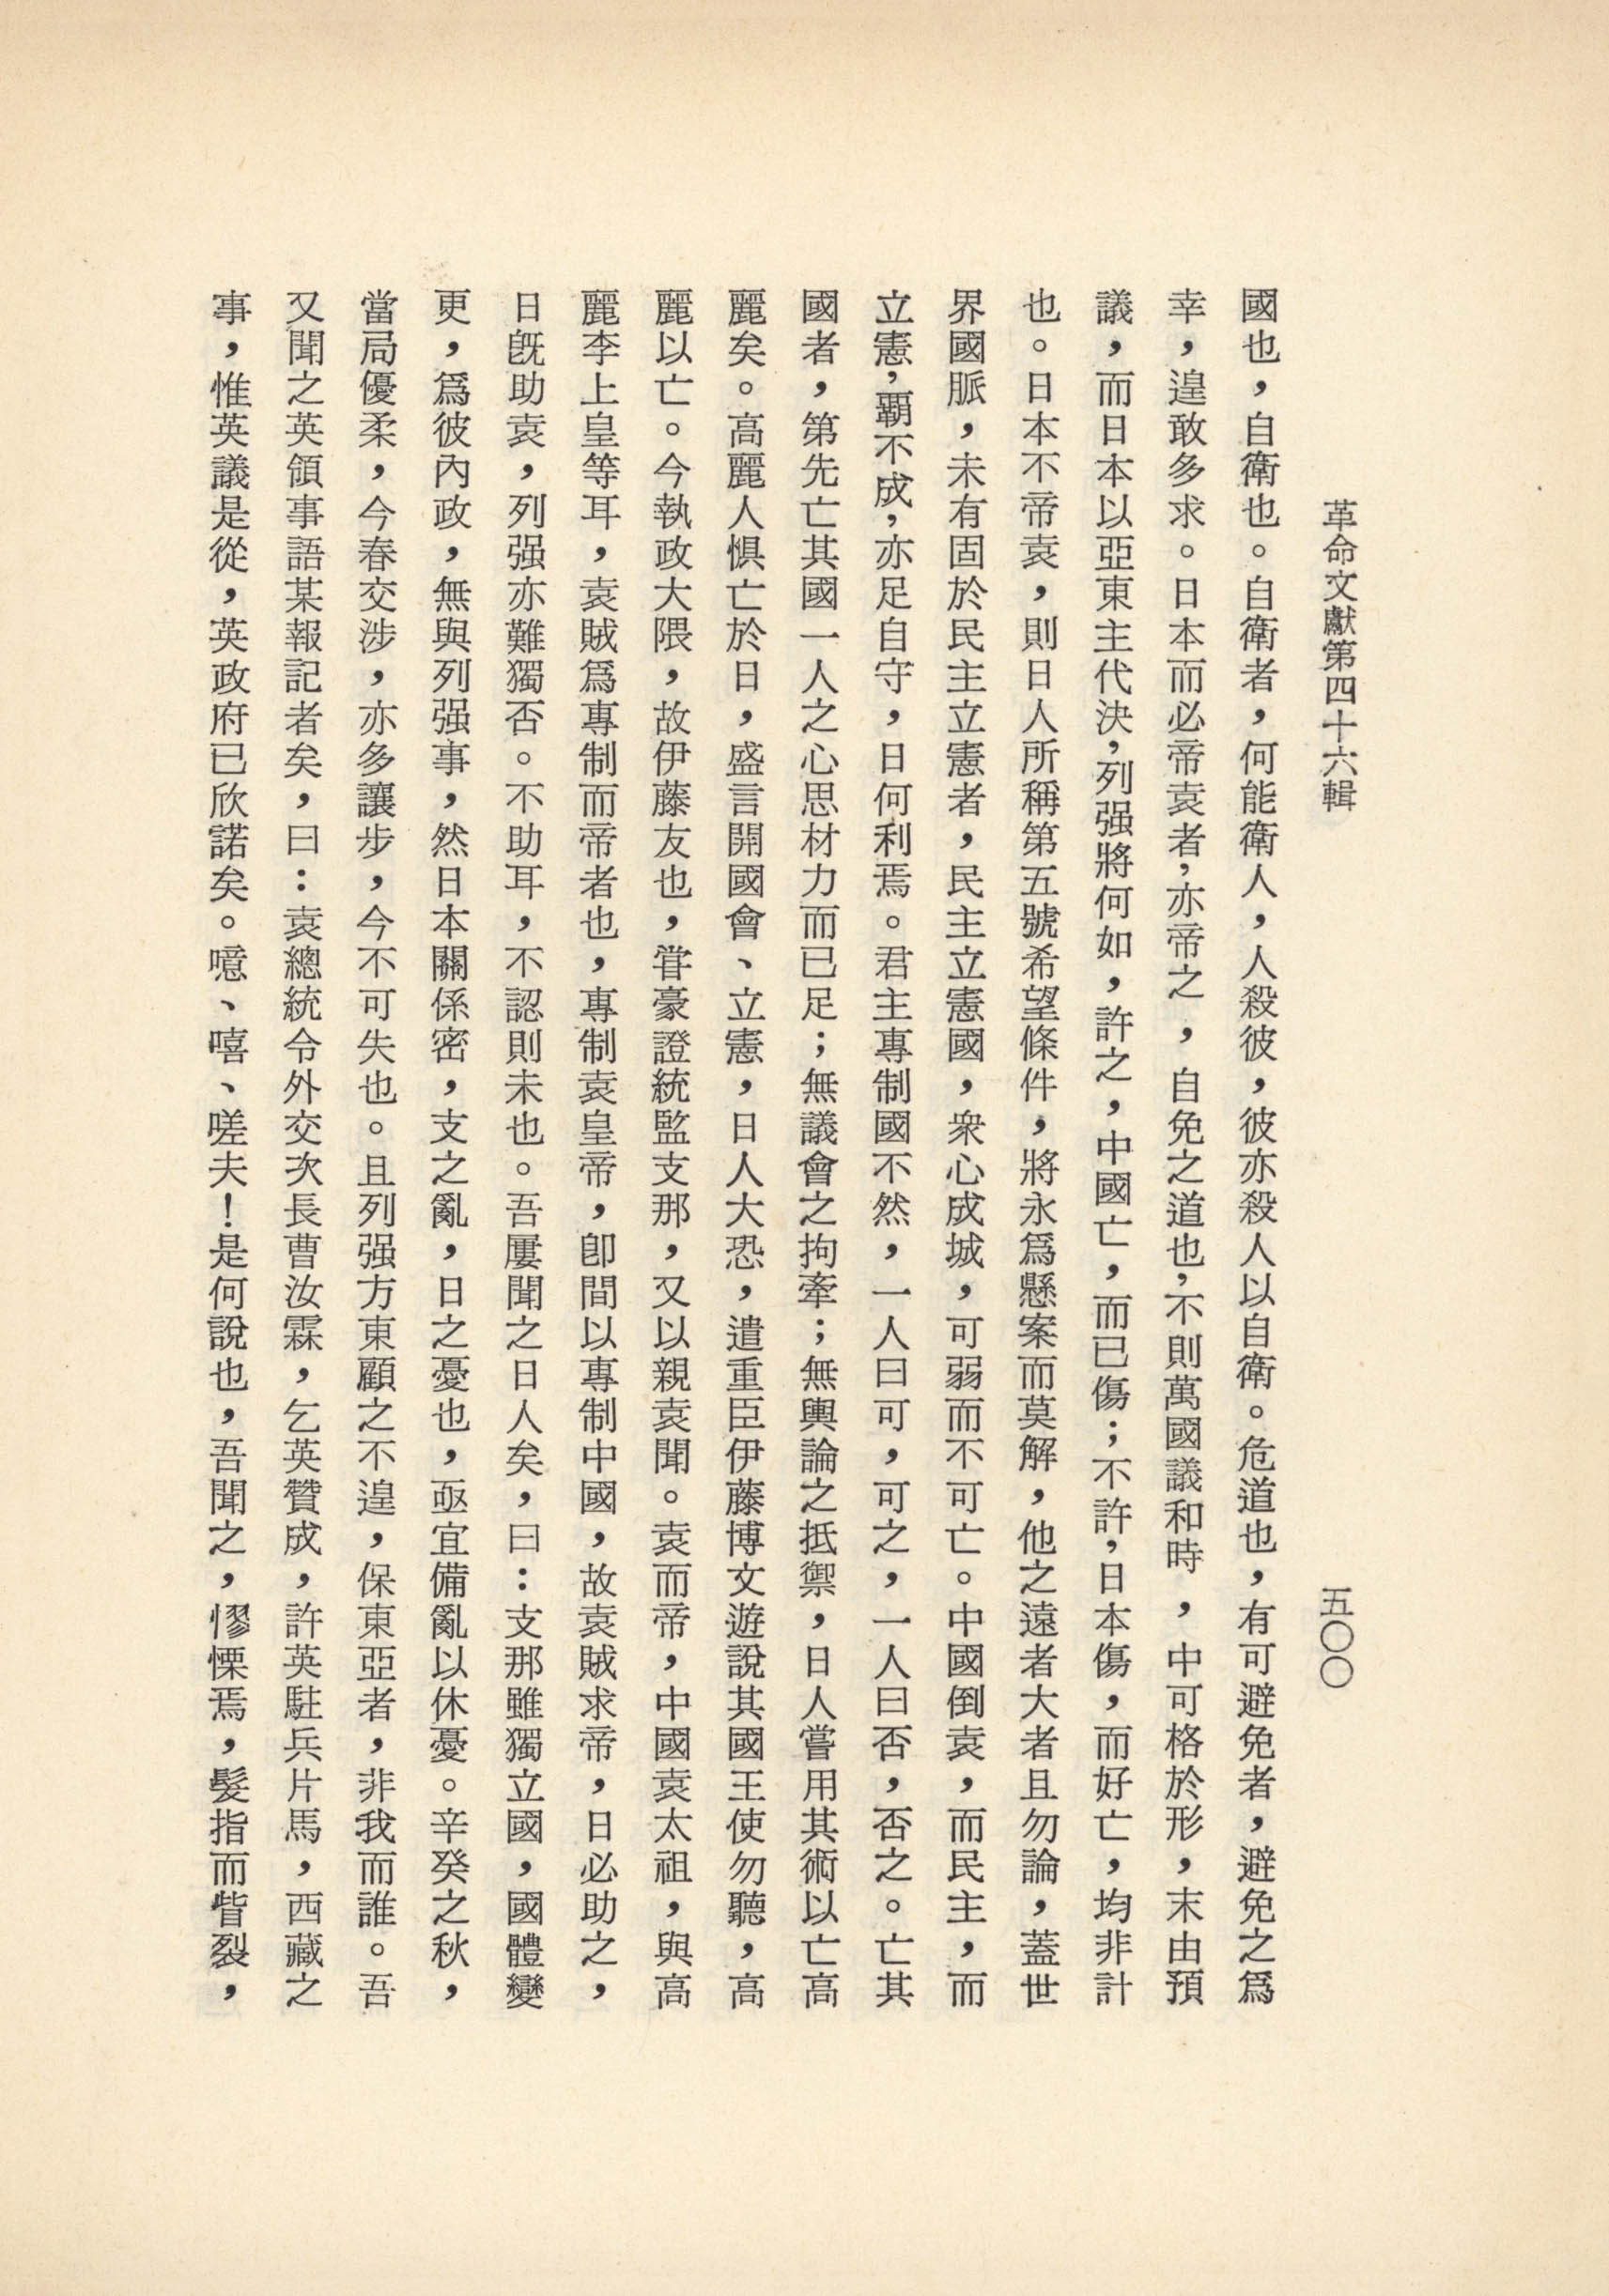 革命文獻第四十六輯
五〇〇
國也，自衛也。自衛者，何能衛人，人殺彼，彼亦殺人以自衛。危道也，有可避免者，避免之爲
幸，遑敢多求。日本而必帝袁者，亦帝之，自免之道也，不則萬國議和時，中可格於形，末由預
議，而日本以亞東主代決，列强將何如，許之，中國亡，而已傷；不許，日本傷，而好亡，均非計
也。日本不帝袁，則日人所稱第五號希望條件，將永爲懸案而莫解，他之遠者大者且勿論，蓋世
界國脈，未有固於民主立憲者，民主立憲國，衆心成城，可弱而不可亡。中國倒袁，而民主，而
立憲，覇不成，亦足自守，日何利焉。君主專制國不然，一人曰可，可之，一人曰否，否之。亡其
國者，第先亡其國一人之心思材力而已足；無議會之拘牽；無輿論之抵禦，日人嘗用其術以亡高
麗矣。高麗人惧亡於日，盛言開國會、立憲，日人大恐，遣重臣伊藤博文遊說其國王使勿聽，高
麗以亡。今執政大隈，故伊藤友也，甞豪證統監支那，又以親袁聞。袁而帝，中國袁太祖，與高
麗李上皇等耳，袁賊爲專制而帝者也，專制袁皇帝，卽間以專制中國，故袁賊求帝，日必助之，
日旣助袁，列强亦難獨否。不助耳，不認則未也。吾屢聞之日人矣，曰：支那雖獨立國，國體變
更，爲彼內政，無與列强事，然日本關係密，支之亂，日之憂也，亟宜備亂以休憂。辛癸之秋，
當局優柔，今春交涉，亦多讓步，今不可失也。且列强方東顧之不遑，保東亞者，非我而誰。吾
又聞之英領事語某報記者矣，曰：袁總統令外交次長曹汝霖，乞英贊成，許英駐兵片馬，西藏之
事，惟英議是從，英政府已欣諾矣。噫、嘻、嗟夫！是何說也，吾聞之，憀慄焉，髮指而眥裂，